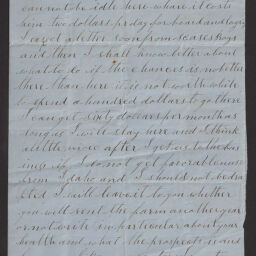 cannot be idle here where it costs
him two dollars pr day for board and lodg
I expect a letter soon from
and then I shall know better about
what to do if the chances is no better
there than here it is not worth while
to spend a hundred dollars to go there
I can get sixty dollars per month as
long as I will stay here and I think
a little more after I get us to the bus
iness if I do not get favorable news
from Idaho and I should not be dis
I will leave it to you whether
you will rent the farm another year
or not write in particular about your
health and what the prospects is and